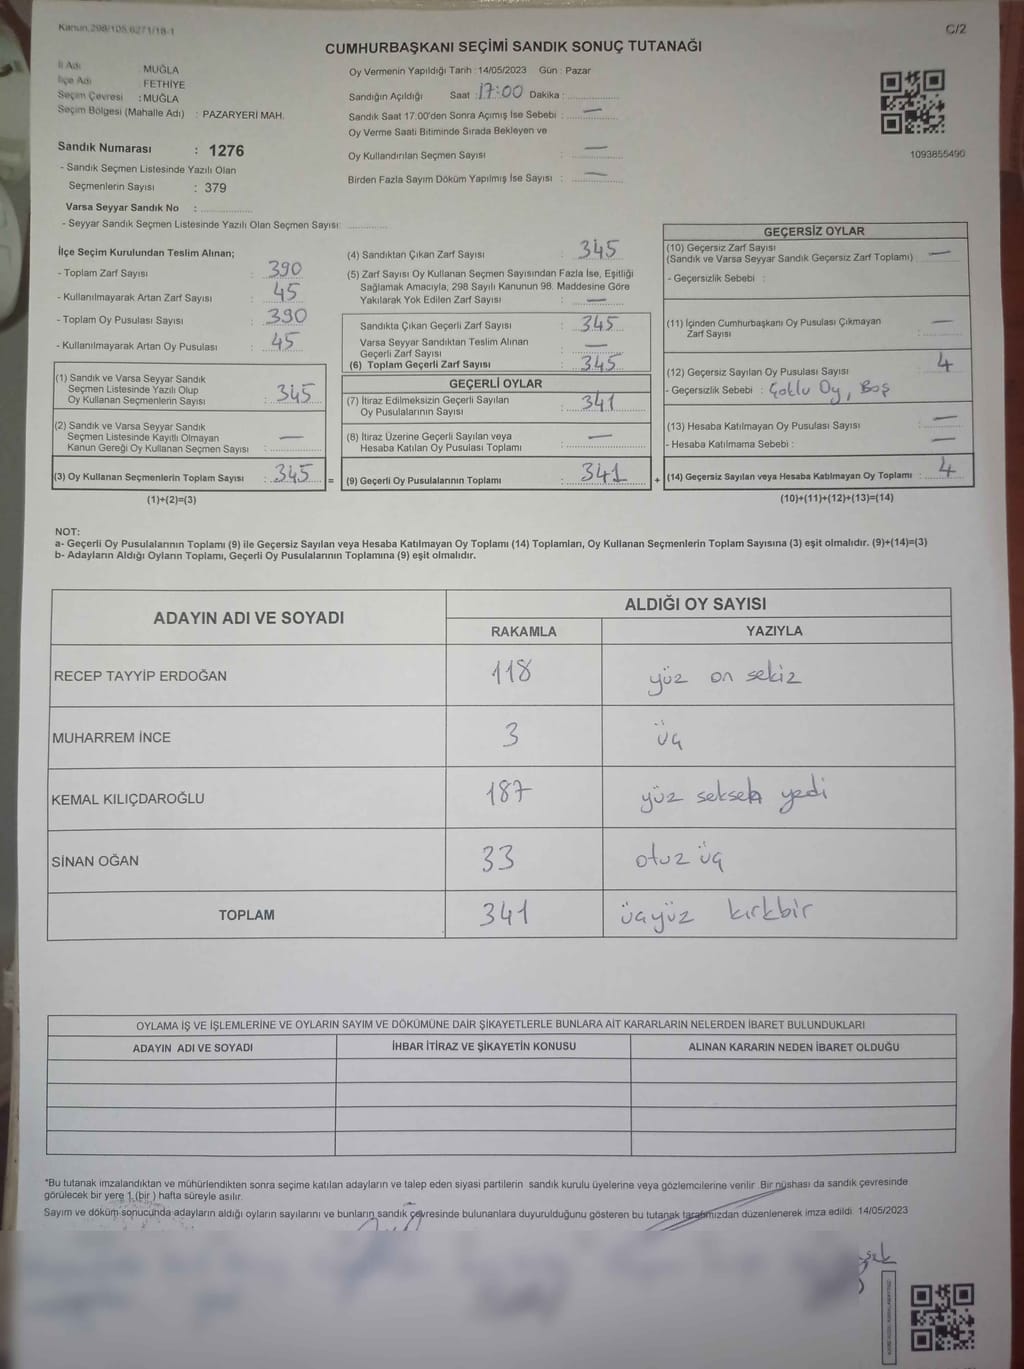 Kanun.298/105,6271/18-1
C/2
CUMHURBAŞKANI SEÇİMİ SANDIK SONUÇ TUTANAĞI
İl Adı MUĞLA
İlçe Adı FETHİYE
Seçim Çevresi :MUĞLA
Seçim Bölgesi (Mahalle Adı) : PAZARYERİ MAH.
Sandık Numarası : 1276
- Sandık Seçmen Listesinde Yazılı Olan
Seçmenlerin Sayısı : 379
Varsa Seyyar Sandık No :
- Seyyar Sandık Seçmen Listesinde Yazılı Olan Seçmen Sayısı:
Oy Vermenin Yapıldığı Tarih :14/05/2023 Gün : Pazar
Sandığın Açıldığı Saat :17:00 Dakika :
Sandık Saat 17:00'den Sonra Açımış İse Sebebi : —
Oy Verme Saati Bitiminde Sırada Bekleyen ve
Oy Kullandırılan Seçmen Sayısı : —
Birden Fazla Sayım Döküm Yapılmış İse Sayısı : —
1093855490
İlçe Seçim Kurulundan Teslim Alınan;
- Toplam Zarf Sayısı : 390
- Kullanılmayarak Artan Zarf Sayısı : 45
- Toplam Oy Pusulası Sayısı : 390
- Kullanılmayarak Artan Oy Pusulası : 45
(1) Sandık ve Varsa Seyyar Sandık
Seçmen Listesinde Yazılı Olup
Oy Kullanan Seçmenlerin Sayısı : 345
(2) Sandık ve Varsa Seyyar Sandık
Seçmen Listesinde Kayıtlı Olmayan
Kanun Gereği Oy Kullanan Seçmen Sayısı : —
(3) Oy Kullanan Seçmenlerin Toplam Sayısı : 345 =
(1)+(2)=(3)
(4) Sandıktan Çıkan Zarf Sayısı : 345
(5) Zarf Sayısı Oy Kullanan Seçmen Sayısından Fazla İse, Eşitliği
Sağlamak Amacıyla, 298 Sayılı Kanunun 98. Maddesine Göre
Yakılarak Yok Edilen Zarf Sayısı : —
Sandıkta Çıkan Geçerli Zarf Sayısı : 345
Varsa Seyyar Sandıktan Teslim Alınan
Geçerli Zarf Sayısı : —
(6) Toplam Geçerli Zarf Sayısı : 345
GEÇERLİ OYLAR
(7) İtiraz Edilmeksizin Geçerli Sayılan
Oy Pusulalarının Sayısı : 341
(8) İtiraz Üzerine Geçerli Sayılan veya
Hesaba Katılan Oy Pusulası Toplamı : —
(9) Geçerli Oy Pusulalarının Toplamı : 341 +
GEÇERSİZ OYLAR
(10) Geçersiz Zarf Sayısı
(Sandık ve Varsa Seyyar Sandık Geçersiz Zarf Toplamı) : —
- Geçersizlik Sebebi :
(11) İçinden Cumhurbaşkanı Oy Pusulası Çıkmayan
Zarf Sayısı : —
(12) Geçersiz Sayılan Oy Pusulası Sayısı : 4
- Geçersizlik Sebebi : Çoklu Oy, Boş
(13) Hesaba Katılmayan Oy Pusulası Sayısı : —
- Hesaba Katılmama Sebebi : —
(14) Geçersiz Sayılan veya Hesaba Katılmayan Oy Toplamı : 4
(10)+(11)+(12)+(13)=(14)
NOT:
a- Geçerli Oy Pusulalarının Toplamı (9) ile Geçersiz Sayılan veya Hesaba Katılmayan Oy Toplamı (14) Toplamları, Oy Kullanan Seçmenlerin Toplam Sayısına (3) eşit olmalıdır. (9)+(14)=(3)
b- Adayların Aldığı Oyların Toplamı, Geçerli Oy Pusulalarının Toplamına (9) eşit olmalıdır.
ADAYIN ADI VE SOYADI
ALDIĞI OY SAYISI
RAKAMLA YAZIYLA
RECEP TAYYİP ERDOĞAN 118 yüz on sekiz
MUHARREM İNCE 3 üç
KEMAL KILIÇDAROĞLU 187 yüz seksen yedi
SİNAN OĞAN 33 otuz üç
TOPLAM 341 üçyüz kırkbir
OYLAMA İŞ VE İŞLEMLERİNE VE OYLARIN SAYIM VE DÖKÜMÜNE DAİR ŞİKAYETLERLE BUNLARA AİT KARARLARIN NELERDEN İBARET BULUNDUKLARI
ADAYIN ADI VE SOYADI İHBAR İTİRAZ VE ŞİKAYETİN KONUSU ALINAN KARARIN NEDEN İBARET OLDUĞU
*Bu tutanak imzalandıktan ve mühürlendikten sonra seçime katılan adayların ve talep eden siyasi partilerin sandık kurulu üyelerine veya gözlemcilerine verilir. Bir nüshası da sandık çevresinde
görülecek bir yere 1 (bir ) hafta süreyle asılır.
Sayım ve döküm sonucunda adayların aldığı oyların sayılarını ve bunların sandık çevresinde bulunanlara duyurulduğunu gösteren bu tutanak tarafımızdan düzenlenerek imza edildi. 14/05/2023